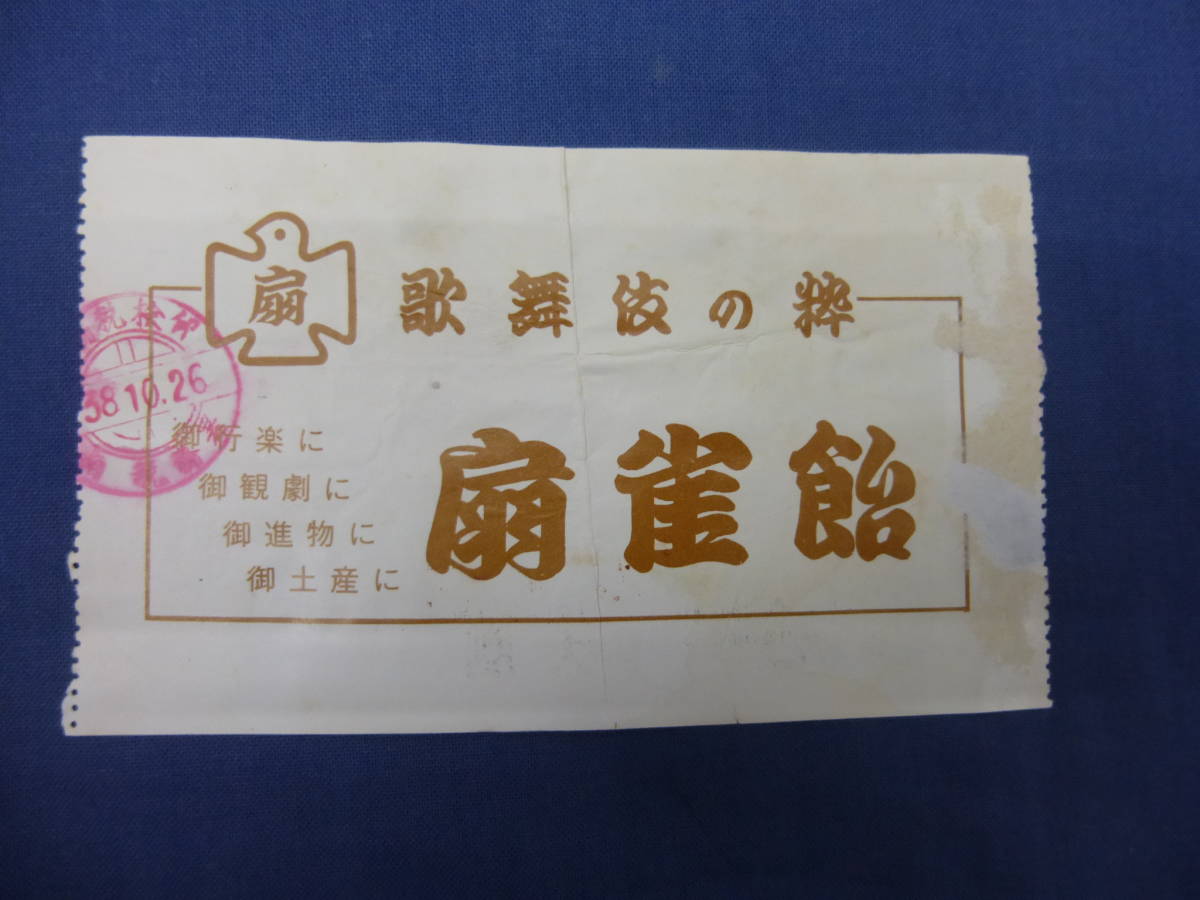 扇
歌舞伎の粋
38.10.26
御行楽に
御観劇に
御進物に
御土産に
扇雀飴